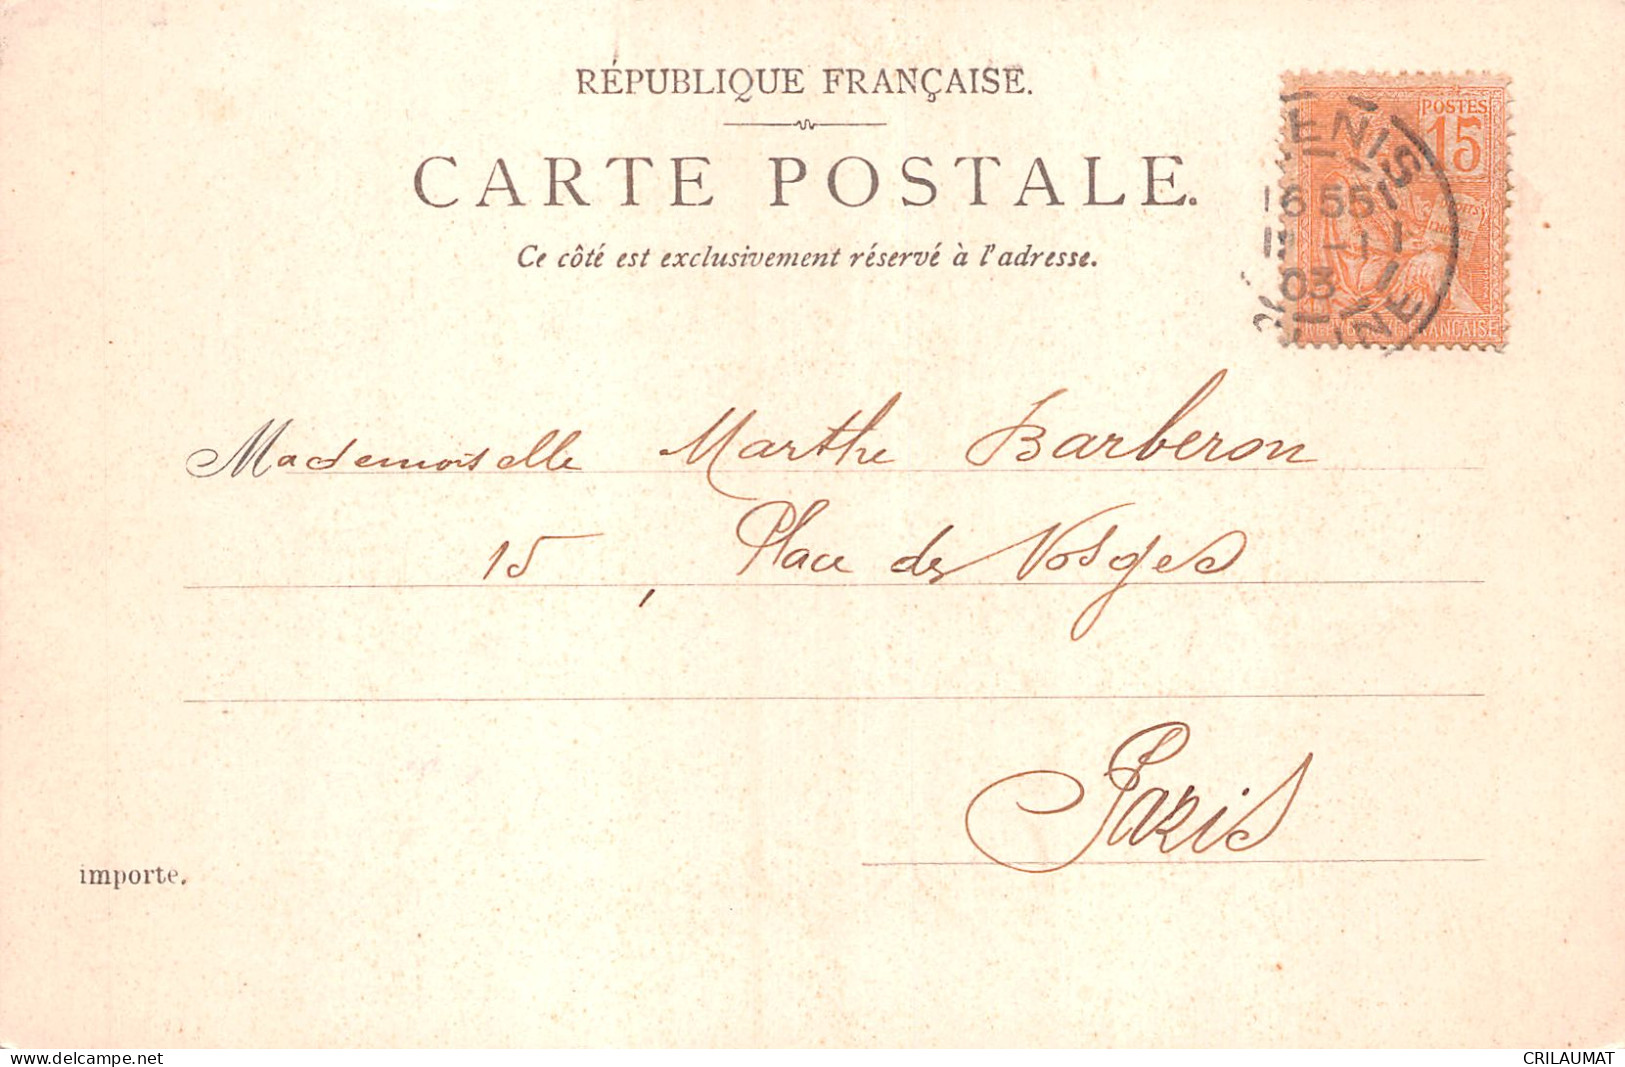 RÉPUBLIQUE FRANÇAISE.
CARTE POSTALE.
Ce côté est exclusivement réservé à l'adresse.
POSTES
15
ENIS
16 55
-1
03
NE
FRANÇAISE
Mademoiselle Marthe Barberon
15, Place des Vosges
Paris
importe.
www.delcampe.net
CRILAUMAT